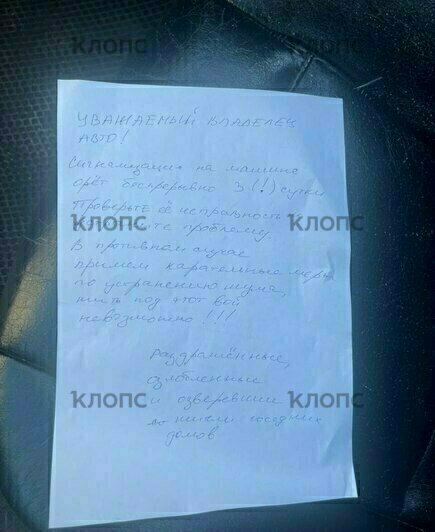 КЛОПС КЛОПС
УВАЖАЕМЫЙ ВЛАДЕЛЕЦ
АВТО!
Сигнализация на машине
орёт беспрерывно 3(!) сутки
Проверьте её исправность и
проблему.
КЛОПС КЛОПС
В противном случае
примем карательные меры
по устранению шума,
жить под этот вой
невозможно!!!
Раздражённые,
озлобленные
КЛОПС КЛОПС
и озверевшие
жители соседних
домов